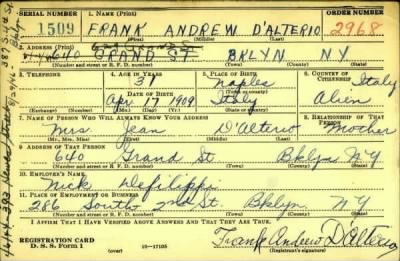 SERIAL NUMBER 1. NAME (Print) ORDER NUMBER
1509 FRANK ANDREW D'ALTERIO 2968
(First) (Middle) (Last)
2. ADDRESS (Print)
640 GRAND ST. BKLYN N Y
(Number and street or R. F. D. number) (Town) (County) (State)
3. TELEPHONE 4. AGE IN YEARS 5. PLACE OF BIRTH 6. COUNTRY OF CITIZENSHIP
31 Naples Italy
DATE OF BIRTH (Town or county)
Apr 17 1909 Italy Alien
(Exchange) (Number) (Mo.) (Day) (Yr.) (State or country)
7. NAME OF PERSON WHO WILL ALWAYS KNOW YOUR ADDRESS 8. RELATIONSHIP OF THAT PERSON
Mrs. Jean D'Alterio Mother
(Mr., Mrs., Miss) (First) (Middle) (Last)
9. ADDRESS OF THAT PERSON
640 Grand St Bklyn N Y
(Number and street or R. F. D. number) (Town) (County) (State)
10. EMPLOYER'S NAME
Nick Defilippi
11. PLACE OF EMPLOYMENT OR BUSINESS
286 South 2nd St. Bklyn. N.Y
(Number and street or R. F. D. number) (Town) (County) (State)
I AFFIRM THAT I HAVE VERIFIED ABOVE ANSWERS AND THAT THEY ARE TRUE.
REGISTRATION CARD
D. S. S. Form 1 (over) 16—17105
Frank Andrew D'Alterio
(Registrant's signature)